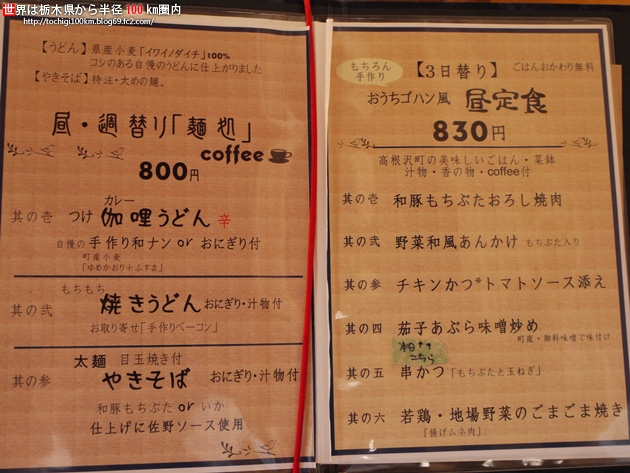 世界は栃木県から半径100km圏内
http://tochigi100km.blog69.fc2.com/
【うどん】県産小麦「イワイノダイチ」100%
コシのある自慢のうどんに仕上がりました
【やきそば】特注・太めの麺。
昼・週替り「麺処」
coffee
800円
其の壱 つけ伽哩うどん 辛
カレー
自慢の手作り和ナン or おにぎり付
町産小麦
「ゆめかおり+ふすま」
もちもち
其の弐 焼きうどん おにぎり・汁物付
お取り寄せ「手作りベーコン」
太麺 目玉焼き付
其の参 やきそば おにぎり・汁物付
和豚もちぶた or いか
仕上げに佐野ソース使用
もちろん
手作り
【3日替り】 ごはんおかわり無料
おうちゴハン風 昼定食
830円
高根沢町の美味しいごはん・菜鉢
汁物・香の物・coffee付
其の壱 和豚もちぶたおろし焼肉
其の弐 野菜和風あんかけ もちぶた入り
其の参 チキンかつ*トマトソース添え
其の四 茄子あぶら味噌炒め
町産・御料味噌で味付け
こちら
其の五 串かつ「もちぶたと玉ねぎ」
其の六 若鶏・地場野菜のごまごま焼き
「揚げムネ肉」